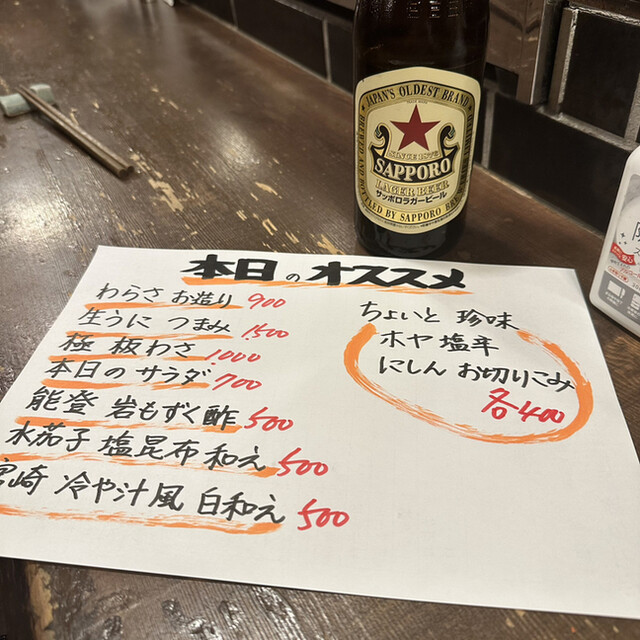 JAPAN'S OLDEST BRAND
SINCE 1876
SAPPORO
LAGER BEER
サッポロラガービール
本日のオススメ
わらさ お造り 900
生うに つまみ 1500
極 板わさ 1000
本日の サラダ 700
能登 岩もずく酢 500
水茄子 塩昆布 和え 500
宮崎 冷や汁風 白和え 500
ちょいと 珍味
ホヤ 塩辛
にしん お切りこみ
各400